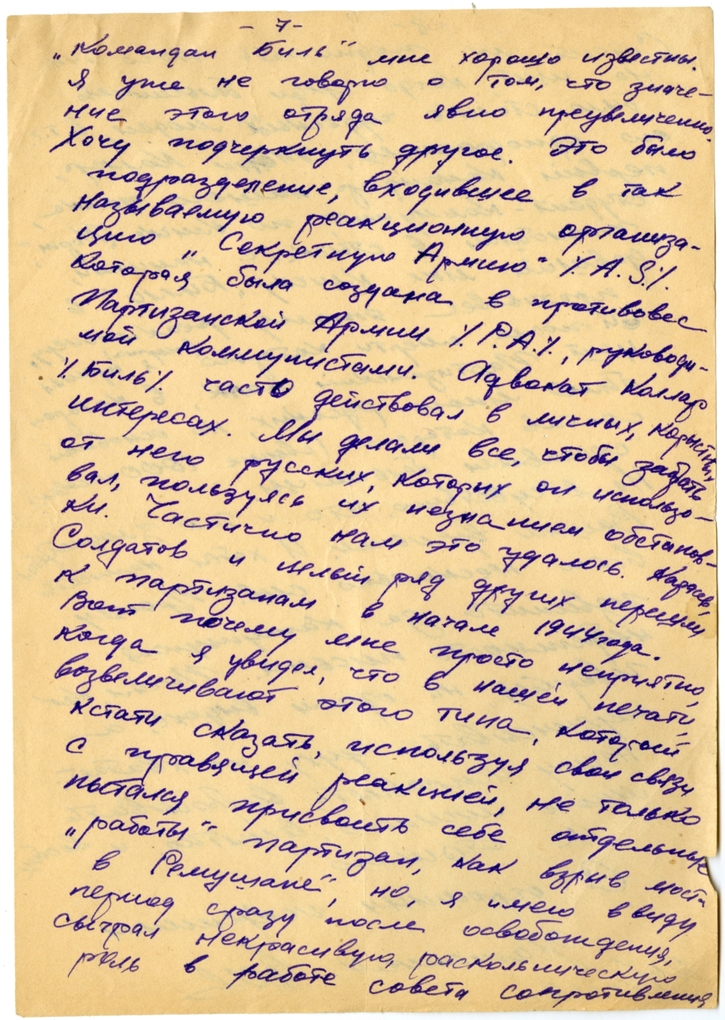 - 7 -
„Командан Биль" мне хорошо известны.
Я уже не говорю о том, что значе-
ние этого отряда явно преувеличено.
Хочу подчеркнуть другое. Это было
подразделение, входившее в так
называемую реакционную организа-
цию „Секретную Армию" /A.S/.
Которая была создана в противовес
Партизанской Армии /P.A/, руководи-
мой коммунистами. Адвокат Коллар
/Биль/ часто действовал в личных, корыстных
интересах. Мы делали все, чтобы забрать
от него русских, которых он использо-
вал, пользуясь их незнанием обстанов-
ки. Частично нам это удалось.
Солдатов и целый ряд других перешли
к партизанам в начале 1944 года.
Вот почему мне просто неприятно,
когда я увидел, что в нашей печати
возвеличивают этого типа, который
кстати сказать, используя свои связи
с правящей реакцией, не только
пытался присвоить себе отдельные
„работы" партизан, как взрыв моста
в Ремушане", но, я имею ввиду
период сразу после освобождения,
сыграл некрасивую, раскольническую
роль в работе совета сопротивления